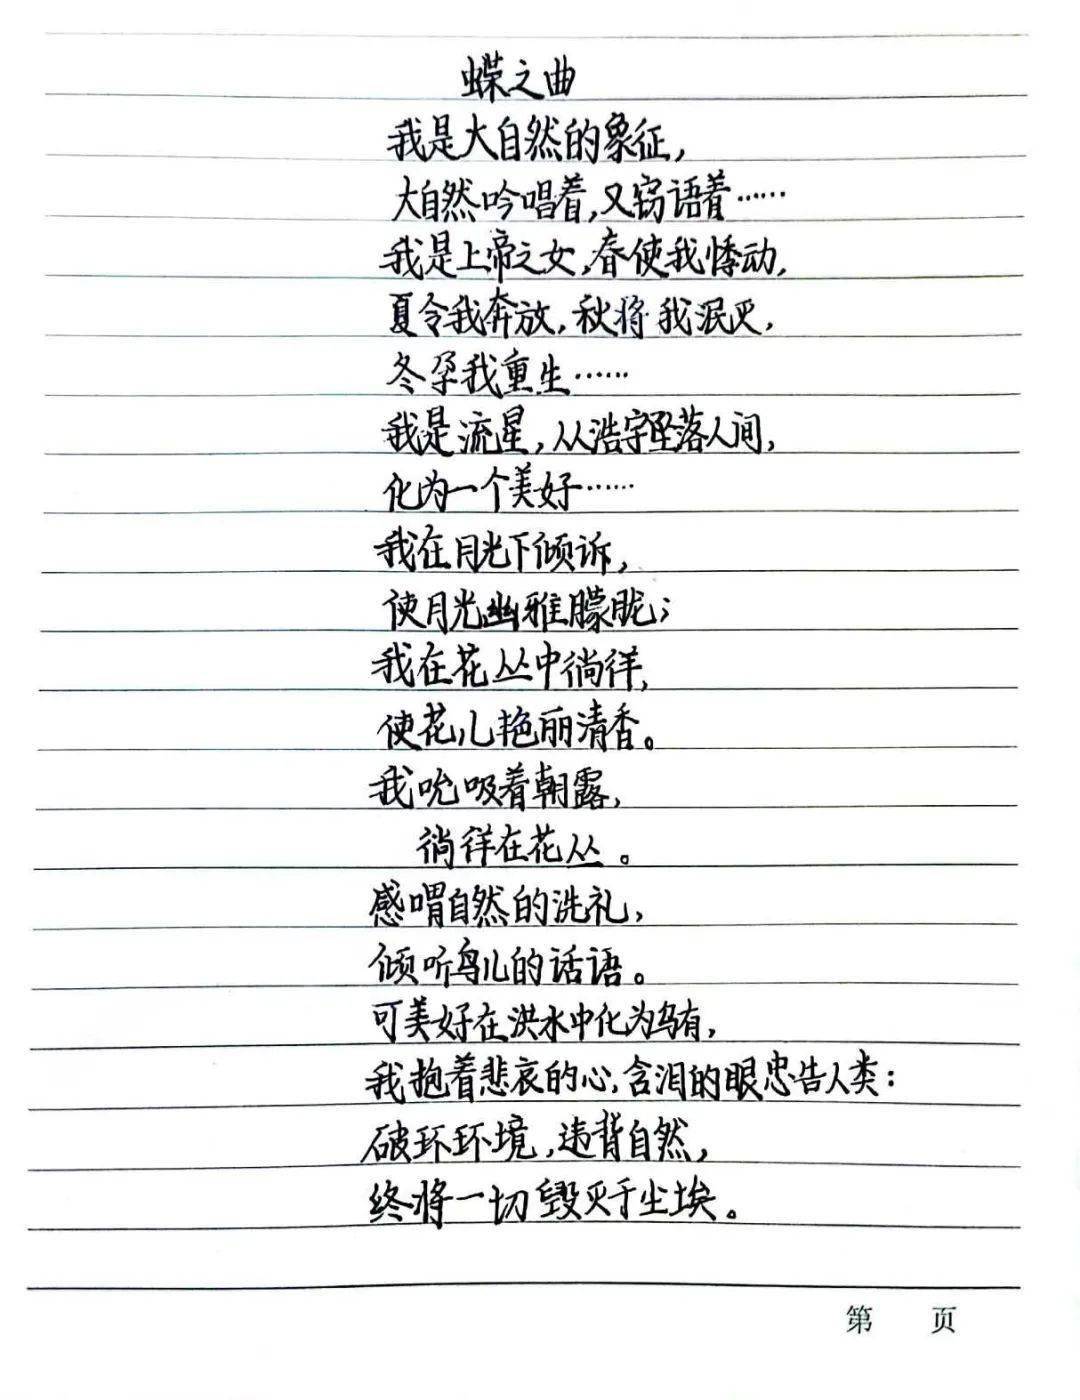 蝶之曲
我是大自然的象征，
大自然吟唱着，又窃语着……
我是上帝之女，春使我悸动，
夏令我奔放，秋将我泯灭，
冬孕我重生……
我是流星，从浩宇坠落人间，
化为一个美好……
我在月光下倾诉，
使月光幽雅朦胧；
我在花丛中徜徉，
使花儿艳丽清香。
我吮吸着朝露，
徜徉在花丛。
感喟自然的洗礼，
倾听鸟儿的话语。
可美好在洪水中化为乌有，
我抱着悲哀的心，含泪的眼忠告人类：
破环环境，违背自然，
终将一切毁灭于尘埃。
第 页